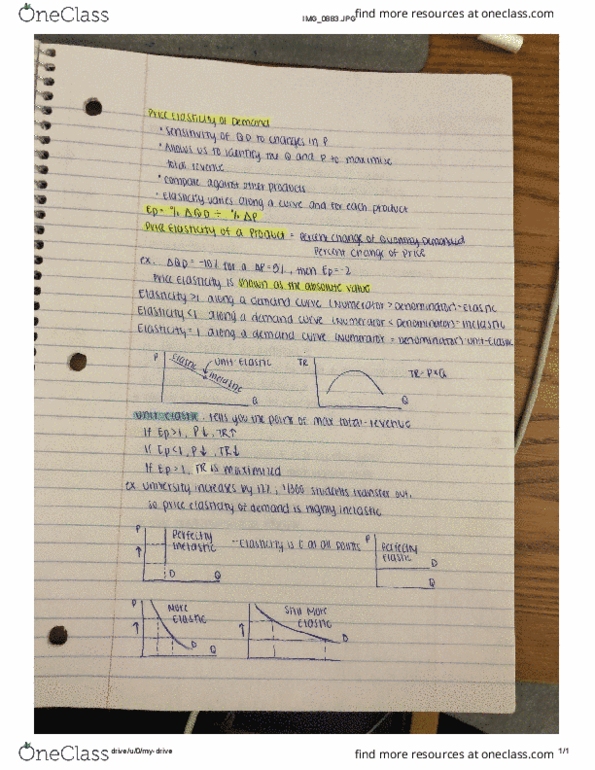 OneClass IMG_0883.JPG find more resources at oneclass.com
Price Elasticity of Demand
• Sensitivity of QD to changes in P
• Allows us to identify the Q and P to maximize
total revenue
• Compare against other products
• Elasticity varies along a curve and for each product
Ep = % ΔQD ÷ % ΔP
Price Elasticity of a Product = Percent change of Quantity Demanded
Percent change of Price
ex. ΔQD = -10% for a ΔP = 5%, then Ep = -2
Price Elasticity is shown as the absolute value
Elasticity >1 along a demand curve (Numerator > Denominator) = Elastic
Elasticity <1 along a demand curve (Numerator < Denominator) = Inelastic
Elasticity = 1 along a demand curve (Numerator = Denominator) unit-Elastic
P elastic unit elastic inelastic Q
TR Q TR = P × Q
unit elastic: tells you the point of max total-revenue
If Ep>1, P↓, TR↑
If Ep<1, P↓, TR↓
If Ep>1, TR is maximized
ex. University increases by 12%, students transfer out.
so price elasticity of demand is highly inelastic
P ↑ Perfectly Inelastic D Q
Elasticity is at all points
P Perfectly elastic D Q
P ↑ More elastic D Q
↑ Still More elastic D
OneClass drive/u/0/my-drive find more resources at oneclass.com 1/1